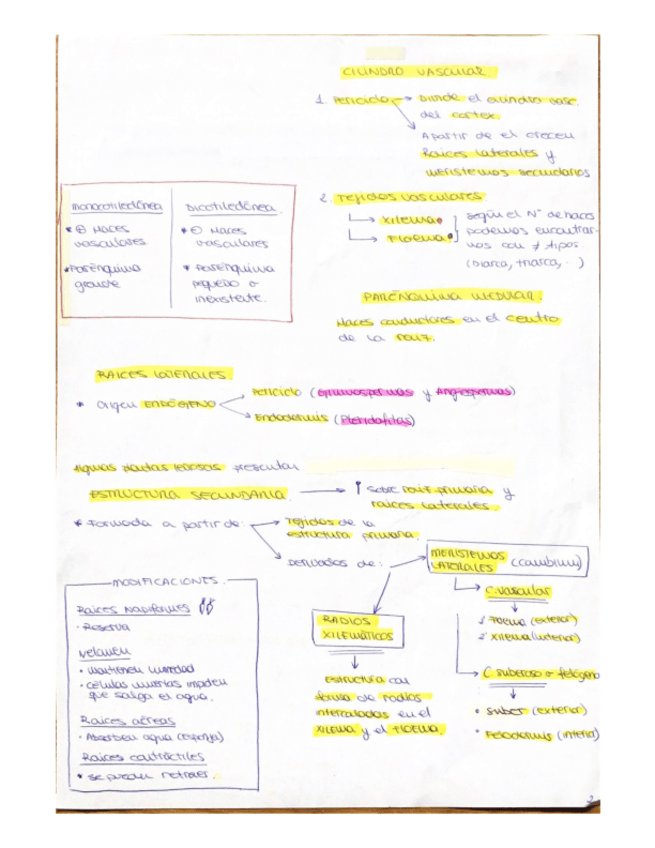 CILINDRO VASCULAR
1. Periciclo → Divide el cilindro vasc.
del cortex.
A partir de el crecen
Raices laterales y
meristemos secundarios
Monocotiledónea
* ⊕ Haces
vasculares
* Parénquima
grande
Dicotiledónea.
* ⊖ Haces
vasculares
* Parénquima
pequeño o
inexistente.
2. Tejidos vasculares
Xilema
Floema
Según el Nº de haces
podemos encontrar-
nos con ≠ tipos
(diarca, triarca, · )
PARÉNQUIMA MEDULAR.
Haces conductores en el centro
de la raíz.
RAICES LATERALES.
* Origen ENDÓGENO
Periciclo (Gimnospermas y Angiospermas)
Endodermis (Pteridofitas)
Algunas plantas leñosas presentan
ESTRUCTURA SECUNDARIA. → ↑ sobre raíz primaria y
raices laterales.
* Formada a partir de:
Tejidos de la
estructura primaria.
Derivados de:
MERISTEMOS
LATERALES (cambium)
C. vascular
1º Floema (exterior)
2º Xilema (interior)
C. suberoso o felógeno
• Suber (exterior)
• Felodermis (interna)
RADIOS
XILEMÁTICOS
Estructura con
forma de radios
intercalados en el
XILEMA y el FLOEMA.
MODIFICACIONES.
Raices Napiformes
· Reserva
Velamen
• Mantienen humedad
• células muertas impiden
que salga el agua.
Raices aéreas
· Absorben agua (esponja)
Raices contráctiles
* se pueden retraer.
2